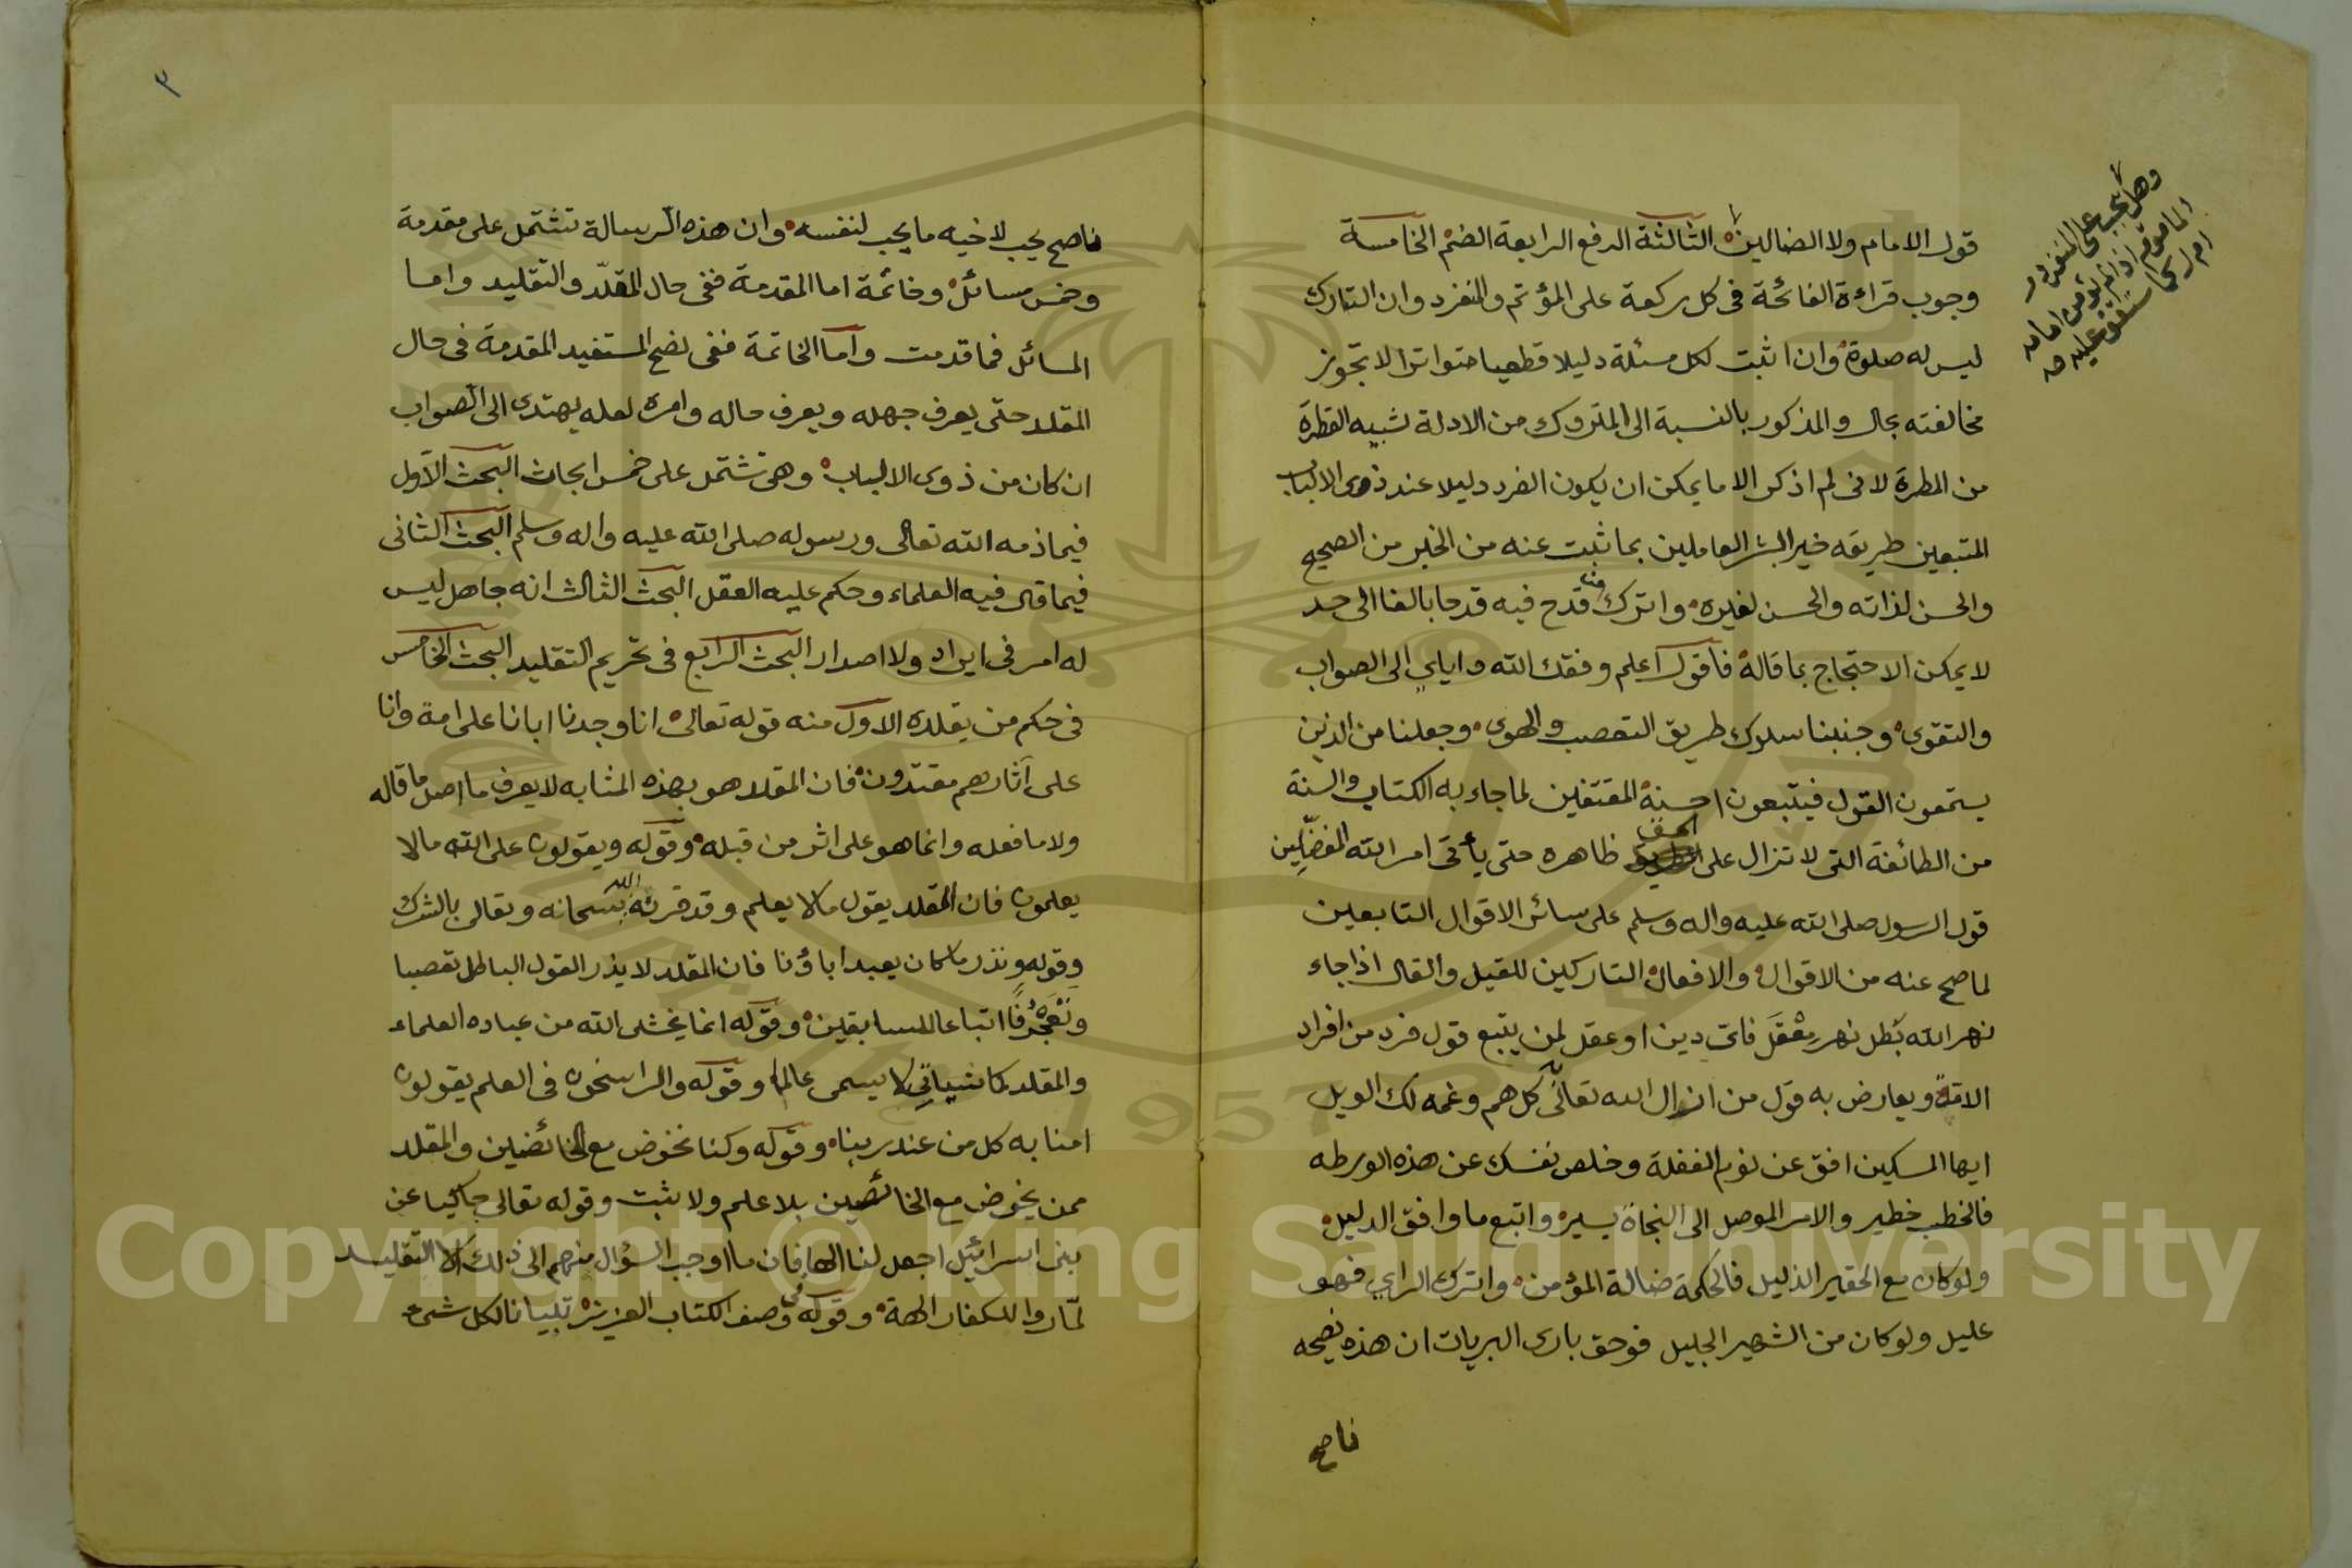 قول الامام ولا الضالين الثالثة الرفع الرابعة الضم الخامسة
وجوب قراءة الفاتحة فى كل ركعة على المؤتم والمنفرد وان التارك
ليس له صلوة وان اثبت لكل مسئلة دليلا قطعيا متواترا لا تجوز
مخالفته بحال والمذكور بالنسبة الى المتروك من الادلة شبيه القطرة
من المطرة لانى لم اذكر الا ما يمكن ان يكون الفرد دليلا عند ذوى الالباب
المتبعين طريقه خير البشر العاملين بما ثبت عنه من الخبر من الصحيح
والحسن لذاته والحسن لغيره واترك من قدح فيه قدحا بالغا الى حد
لا يمكن الاحتجاج بما قاله فاقول اعلم وفقك الله واياي الى الصواب
والتقوى وجنبنا سلوك طريق التعصب والهوى وجعلنا من الذين
يستمعون القول فيتبعون احسنه المقتفين لما جاء به الكتاب والسنة
من الطائفة التى لا تزال على الحق ظاهره حتى يأتى امر الله المفضّلين
قول الرسول صلى الله عليه واله وسلم على سائر الاقوال التابعين
لما صح عنه من الاقوال والافعال التاركين للقيل والقال اذا جاء
نهر الله بطل نهر معقل فاى دين او عقل لمن يتبع قول فرد من افراد
الامة ويعارض به قول من انزال الله تعالى كل هم وغمه لك الويل
ايها المسكين افق عن نوم الغفلة وخلص نفسك عن هذه الورطه
فالخطب خطير والامر الموصل الى النجاة يسير واتبع ما وافق الدليل
ولو كان مع الحقير الذليل فالحكمة ضالة المؤمن واترك الراي فهو
عليل ولو كان من الشهير الجليل فوحق بارى البريات ان هذه نصيحه
ناصح
وهل يجب على المنفرد و
الماموم اذا لم يؤمن امامه
ام لا كما ستقف عليه صه
٣
ناصح يحب لاخيه ما يحب لنفسه وان هذه الرسالة تشتمل على مقدمة
وخمس مسائل وخاتمة اما المقدمة ففى حال المقلّد والتقليد واما
المسائل فما قدمت واما الخاتمة ففى نصح المستفيد المقدمة فى حال
المقلد حتى يعرف جهله ويعرف حاله وامره لعله يهتدى الى الصواب
ان كان من ذوى الالباب وهى تشتمل على خمس ابحاث البحث الاول
فيما ذمه الله تعالى ورسوله صلى الله عليه واله وسلم البحث الثانى
فيما قال فيه العلماء وحكم عليه العقل البحث الثالث انه جاهل ليس
له امر فى ايراد ولا اصدار البحث الرابع فى تحريم التقليد البحث الخامس
فى حكم من يقلده الاول منه قوله تعالى انا وجدنا ابانا على امة وانا
على آثارهم مقتدون فان المقلد هو بهذه المثابه لا يعرف ما اصل ما قاله
ولا ما فعله وانما هو على اثر من قبله وقوله ويقولون على الله ما لا
يعلمون فان المقلد يقول ما لا يعلم وقد قرنه الله سبحانه وتعالى بالشرك
وقوله ونذر ما كان يعبد اباؤنا فان المقلد لا يذر القول الباطل تعصبا
وتَعَجْرُفًا اتباعا للسابقين وقوله انما يخشى الله من عباده العلماء
والمقلد كما سياتي لا يسمى عالما وقوله والراسخون فى العلم يقولون
امنا به كل من عند ربنا وقوله وكنا نخوض مع الخائضين والمقلد
ممن يخوض مع الخائضين بلا علم ولا ثبت وقوله تعالى حاكيا عن
بنى اسرائيل اجعل لنا الها فان ما اوجب السؤال منهم الى ذلك الا التقليد
لمّا روا للكفار الهة وقوله فى وصف الكتاب العزيز تبيانا لكل شىء